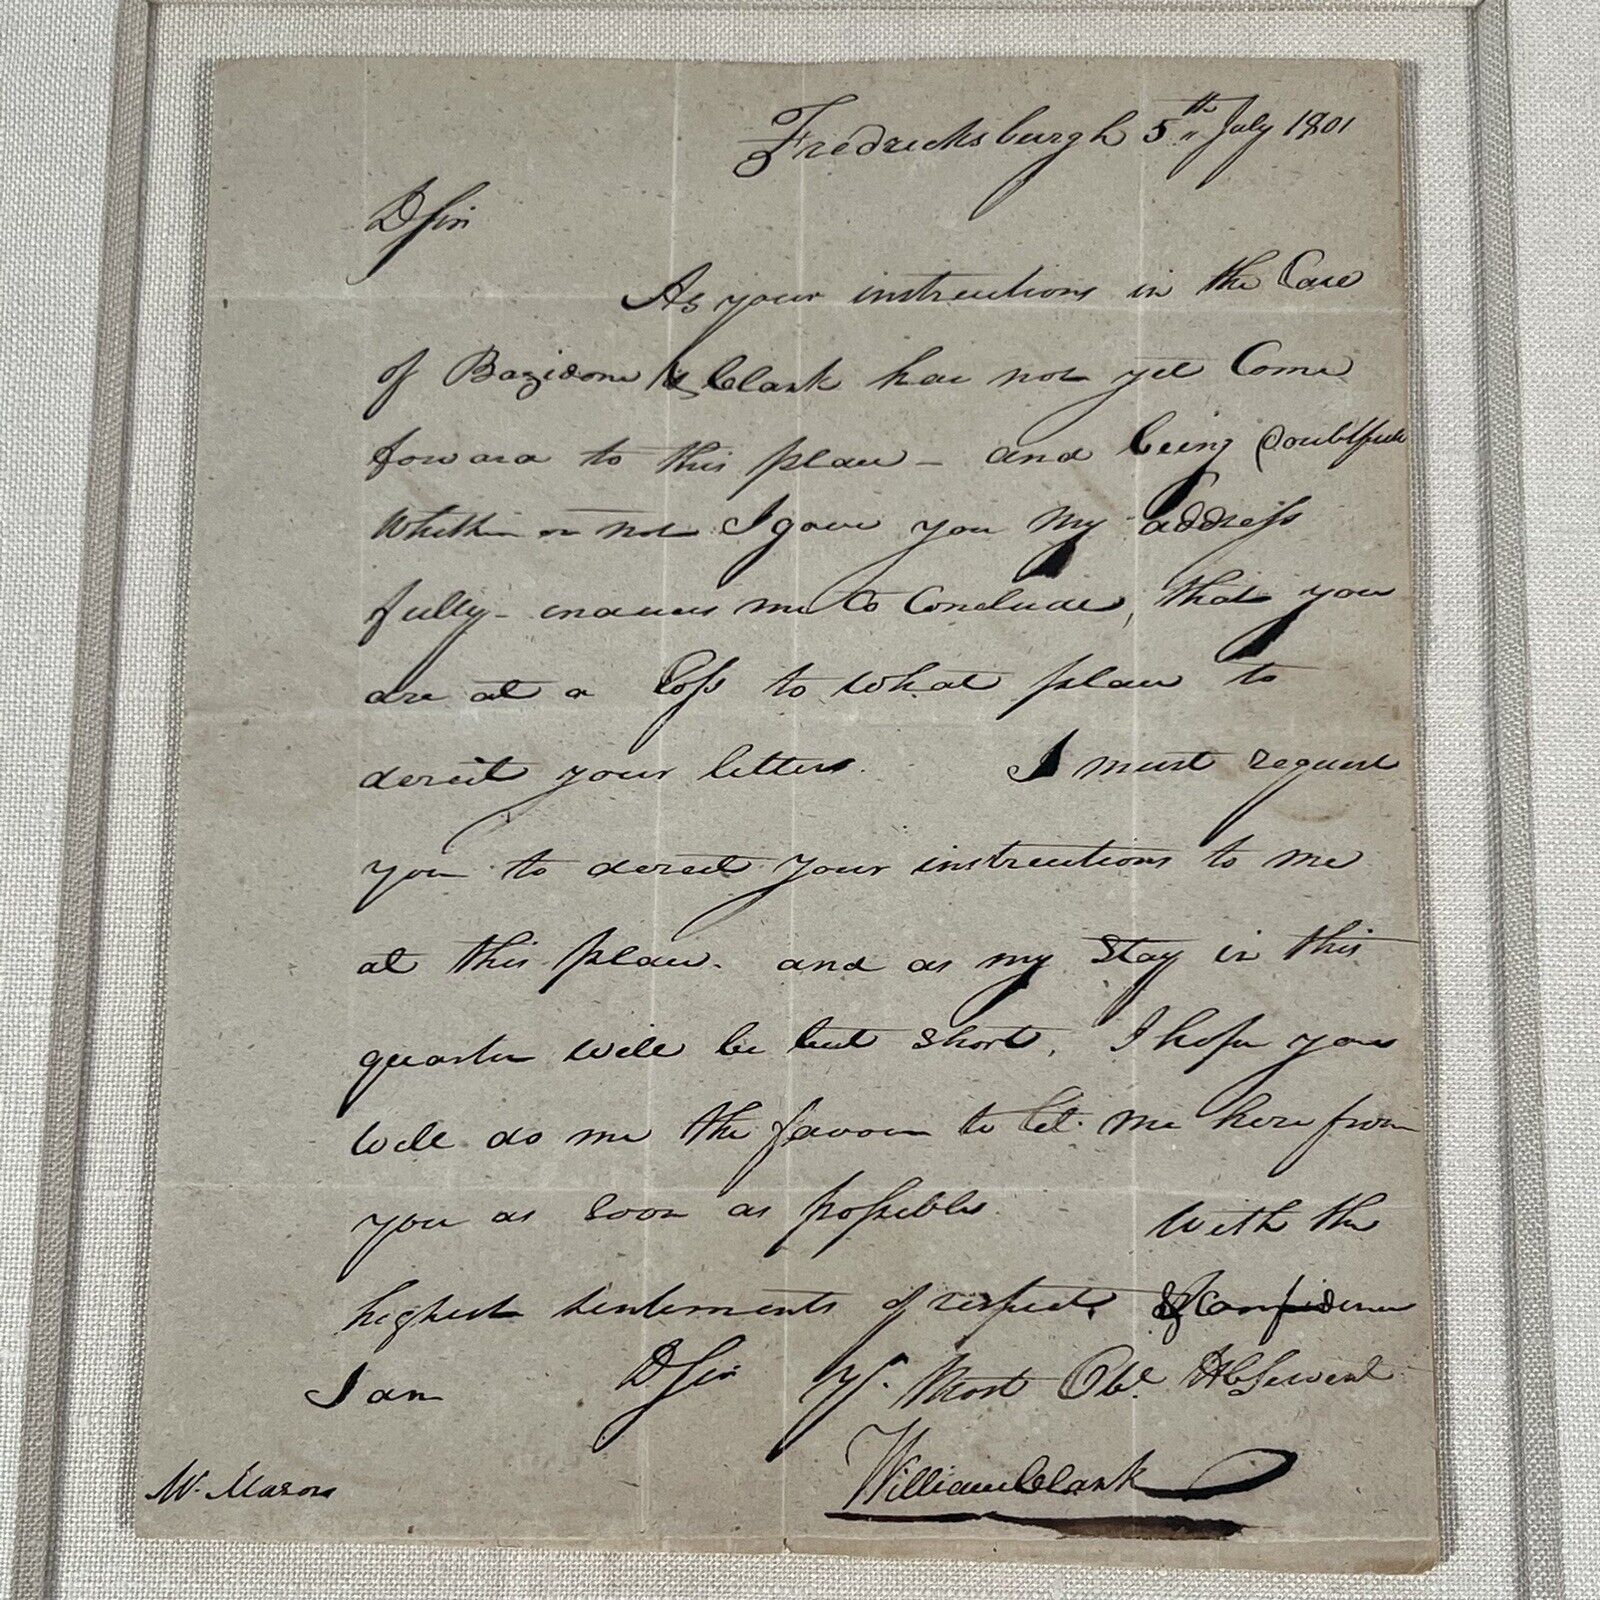 Fredricksburgh 5th July 1801
D Sir
As your instructions in the Case
of Bazidone Vs Clark has not yet Come
forward to this place - and being doubtfull
Whether or not I gave you my address
fully - enduces me to Conclude, that you
are at a Loss to what place to
derect your letters. I must request
you to derect your instructions to me
at this place. and as my Stay in this
quarter will be but Short, I hope you
will do me the favour to let me here from
you as Soon as possible with the
highest Sentements of respect & Confidence
I am D Sir Yr. Most Obt. H Servent
William Clark
Mr. Mason